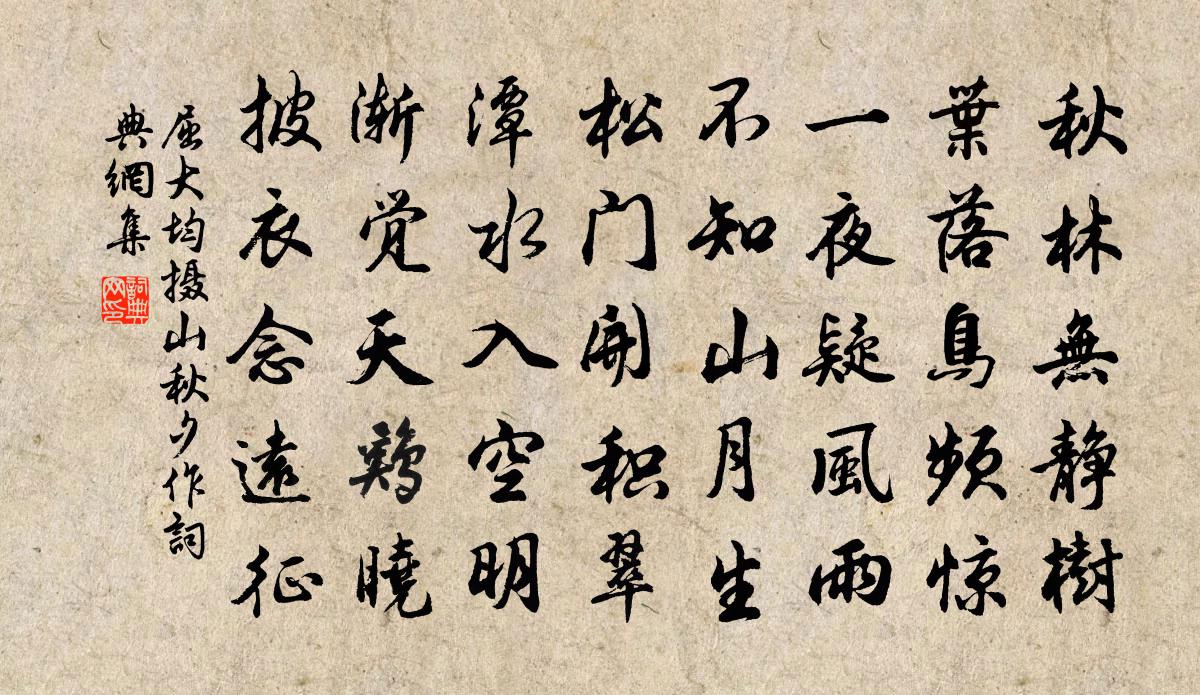 秋林無静樹
葉落鳥頻惊
一夜疑風雨
不知山月生
松门開积翠
潭水入空明
渐觉天鷄曉
披衣念遠征
屈大均摄山秋夕作詞
典網集
詞典
网印